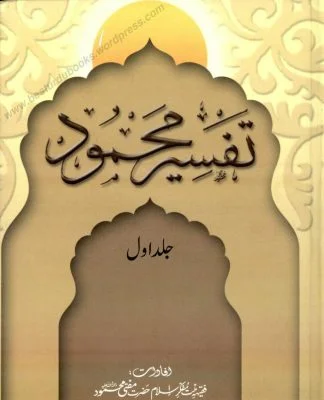 www.besturdubooks.wordpress.com
تفسیر محمود
جلد اول
افادات:
فقیہ ملت مفکر اسلام حضرت مفتی محمود